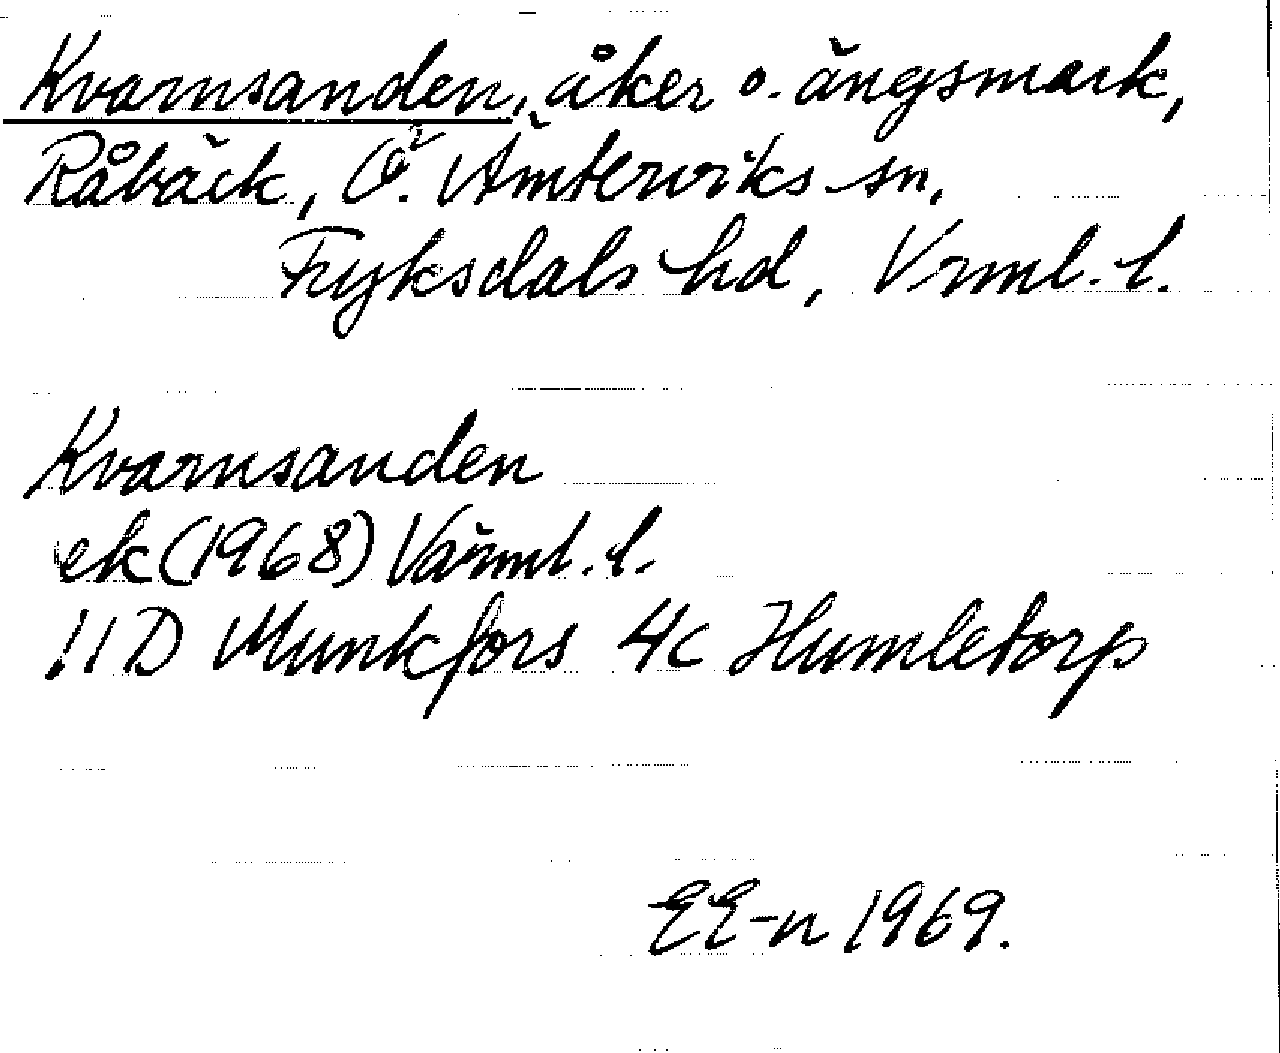 Kvarnsanden, åker o. ängsmark,
Råbäck, Ö. Ämterviks sn,
Fryksdals hd, Vrml. l.
Kvarnsanden
ek (1968) Värml. l.
11D Munkfors 4c Humletorp
EE-n 1969.